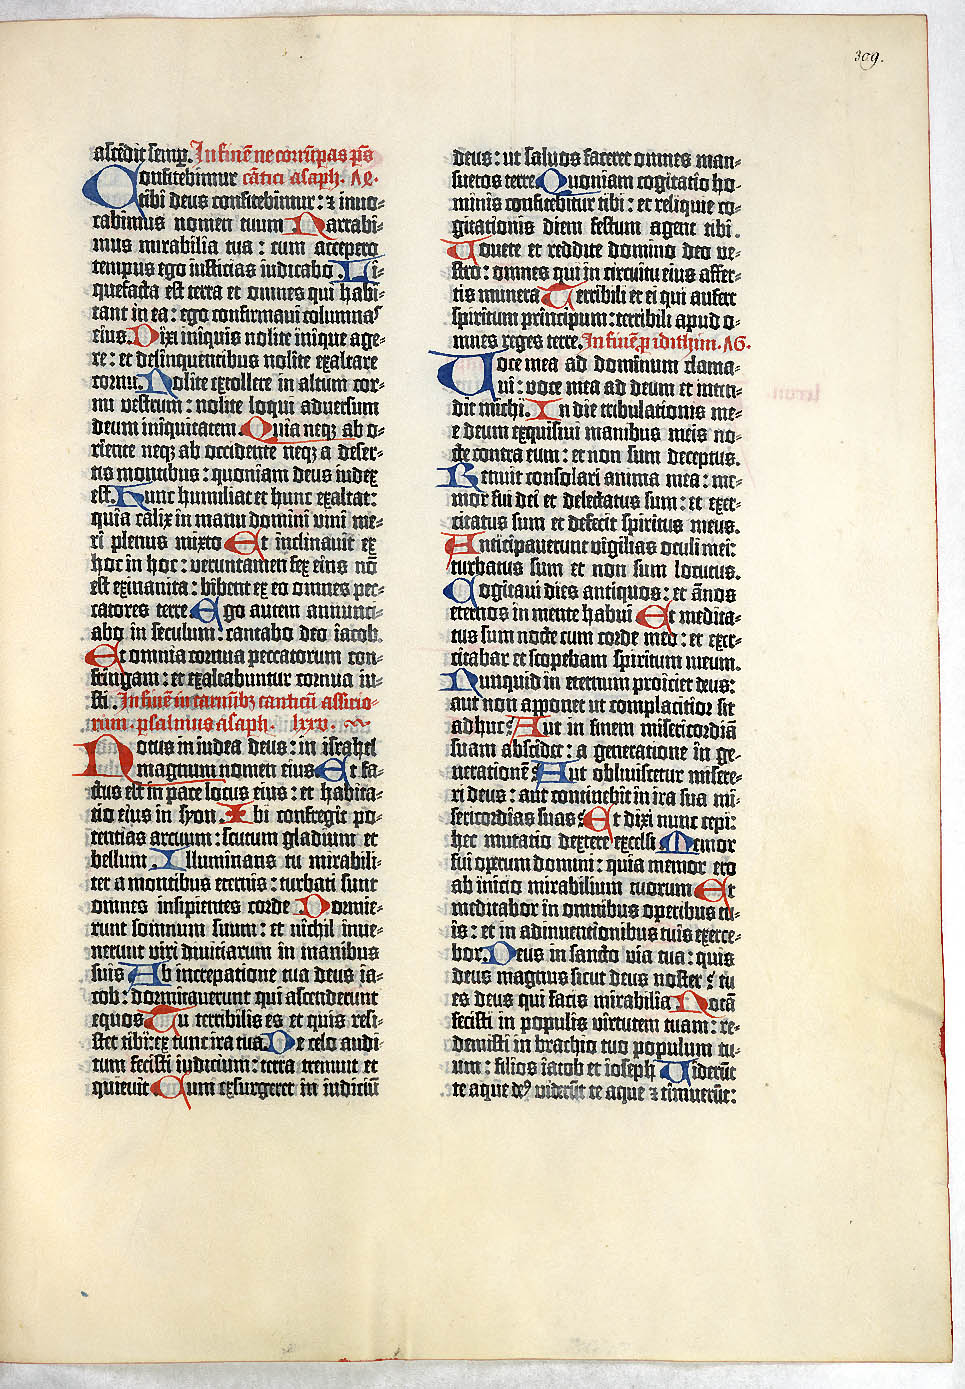 309.
ascēdit semp̲. In finē ne corrūpas ps̄
Confitebimur cātici asaph. ΛΩ.
tibi deus confitebimur: ⁊ inuo-
cabimus nomen tuum Narrabi-
mus mirabilia tua: cum accepero
tempus ego iusticias iudicabo Li-
quefacta est terra et omnes qui habi-
tant in ea: ego confirmaui columnas
eius. Dixi iniquis nolite inique age-
re: et delinquentibus nolite exaltare
cornu. Nolite extollere in altum cor-
nu vestrum: nolite loqui aduersum
deum iniquitatem. Quia neqꝫ ab o-
riente neqꝫ ab occidente neqꝫ a deser-
tis montibus: quoniam deus iudex
est. Hunc humiliat et hunc exaltat:
quia calix in manu domini vini me-
ri plenus mixto Et inclinauit ex
hoc in hoc: veruntamen fex eius nō
est exinanita: bibent ex eo omnes pec-
catores terre. Ego autem annunci-
abo in seculum: cantabo deo iacob.
Et omnia cornua peccatorum con-
fringam: et exaltabuntur cornua iu-
sti. In finē in carmibꝫ canticū assirio-
rum. psalmus asaph. lxxv.
Notus in iudea deus: in israhel
magnum nomen eius Et fa-
ctus est in pace locus eius: et habita-
tio eius in syon. Ibi confregit po-
tentias arcuum: scutum gladium et
bellum. Illuminans tu mirabili-
ter a montibus eternis: turbati sunt
omnes insipientes corde Dormie-
runt somnum suum: et nichil inue-
nerunt viri diuitiarum in manibus
suis Ab increpatione tua deus ia-
cob: dormitauerunt qui ascenderunt
equos Tu terribilis es et quis resi-
stet tibi: ex tunc ira tua. De celo audi-
tum fecisti iudicium: terra tremuit et
quieuit Cum exsurgeret in iudiciū
deus: ut saluos faceret omnes man-
suetos terre. Quoniam cogitatio ho-
minis confitebitur tibi: et reliquie co-
gitationis diem festum agent tibi.
Vouete et reddite domino deo ve-
stro: omnes qui in circuitu eius affer-
tis munera Terribili et ei qui aufert
spiritum principum: terribili apud o-
mnes reges terre. In finē p̲ idithim. ΛG.
Voce mea ad dominum clama-
ui: voce mea ad deum et inten-
dit michi. In die tribulationis me-
e deum exquisiui manibus meis no-
cte contra eum: et non sum deceptus.
Renuit consolari anima mea: me-
mor fui dei et delectatus sum: et exer-
citatus sum et defecit spiritus meus.
Anticipauerunt vigilias oculi mei:
turbatus sum et non sum locutus.
Cogitaui dies antiquos: et ānos
eternos in mente habui Et medita-
tus sum nocte cum corde meo: et exer-
citabar et scopebam spiritum meum.
Nunquid in eternum proiciet deus:
aut non apponet ut complacitior sit
adhuc: Aut in finem misericordiā
suam abscidet: a generatione in ge-
nerationē: Aut obliuiscetur misere-
ri deus: aut continebit in ira sua mi-
sericordias suas: Et dixi nunc cepi:
hec mutatio dextere excelsi Memor
fui operum domini: quia memor ero
ab inicio mirabilium tuorum Et
meditabor in omnibus operibus tu-
is: et in adinuentionibus tuis exerce-
bor. Deus in sancto via tua: quis
deus magnus sicut deus noster: tu
es deus qui facis mirabilia Notā
fecisti in populis virtutem tuam: re-
demisti in brachio tuo populum tu-
um: filios iacob et ioseph Viderūt
te aque deꝰ viderūt te aque ⁊ timuerūt: